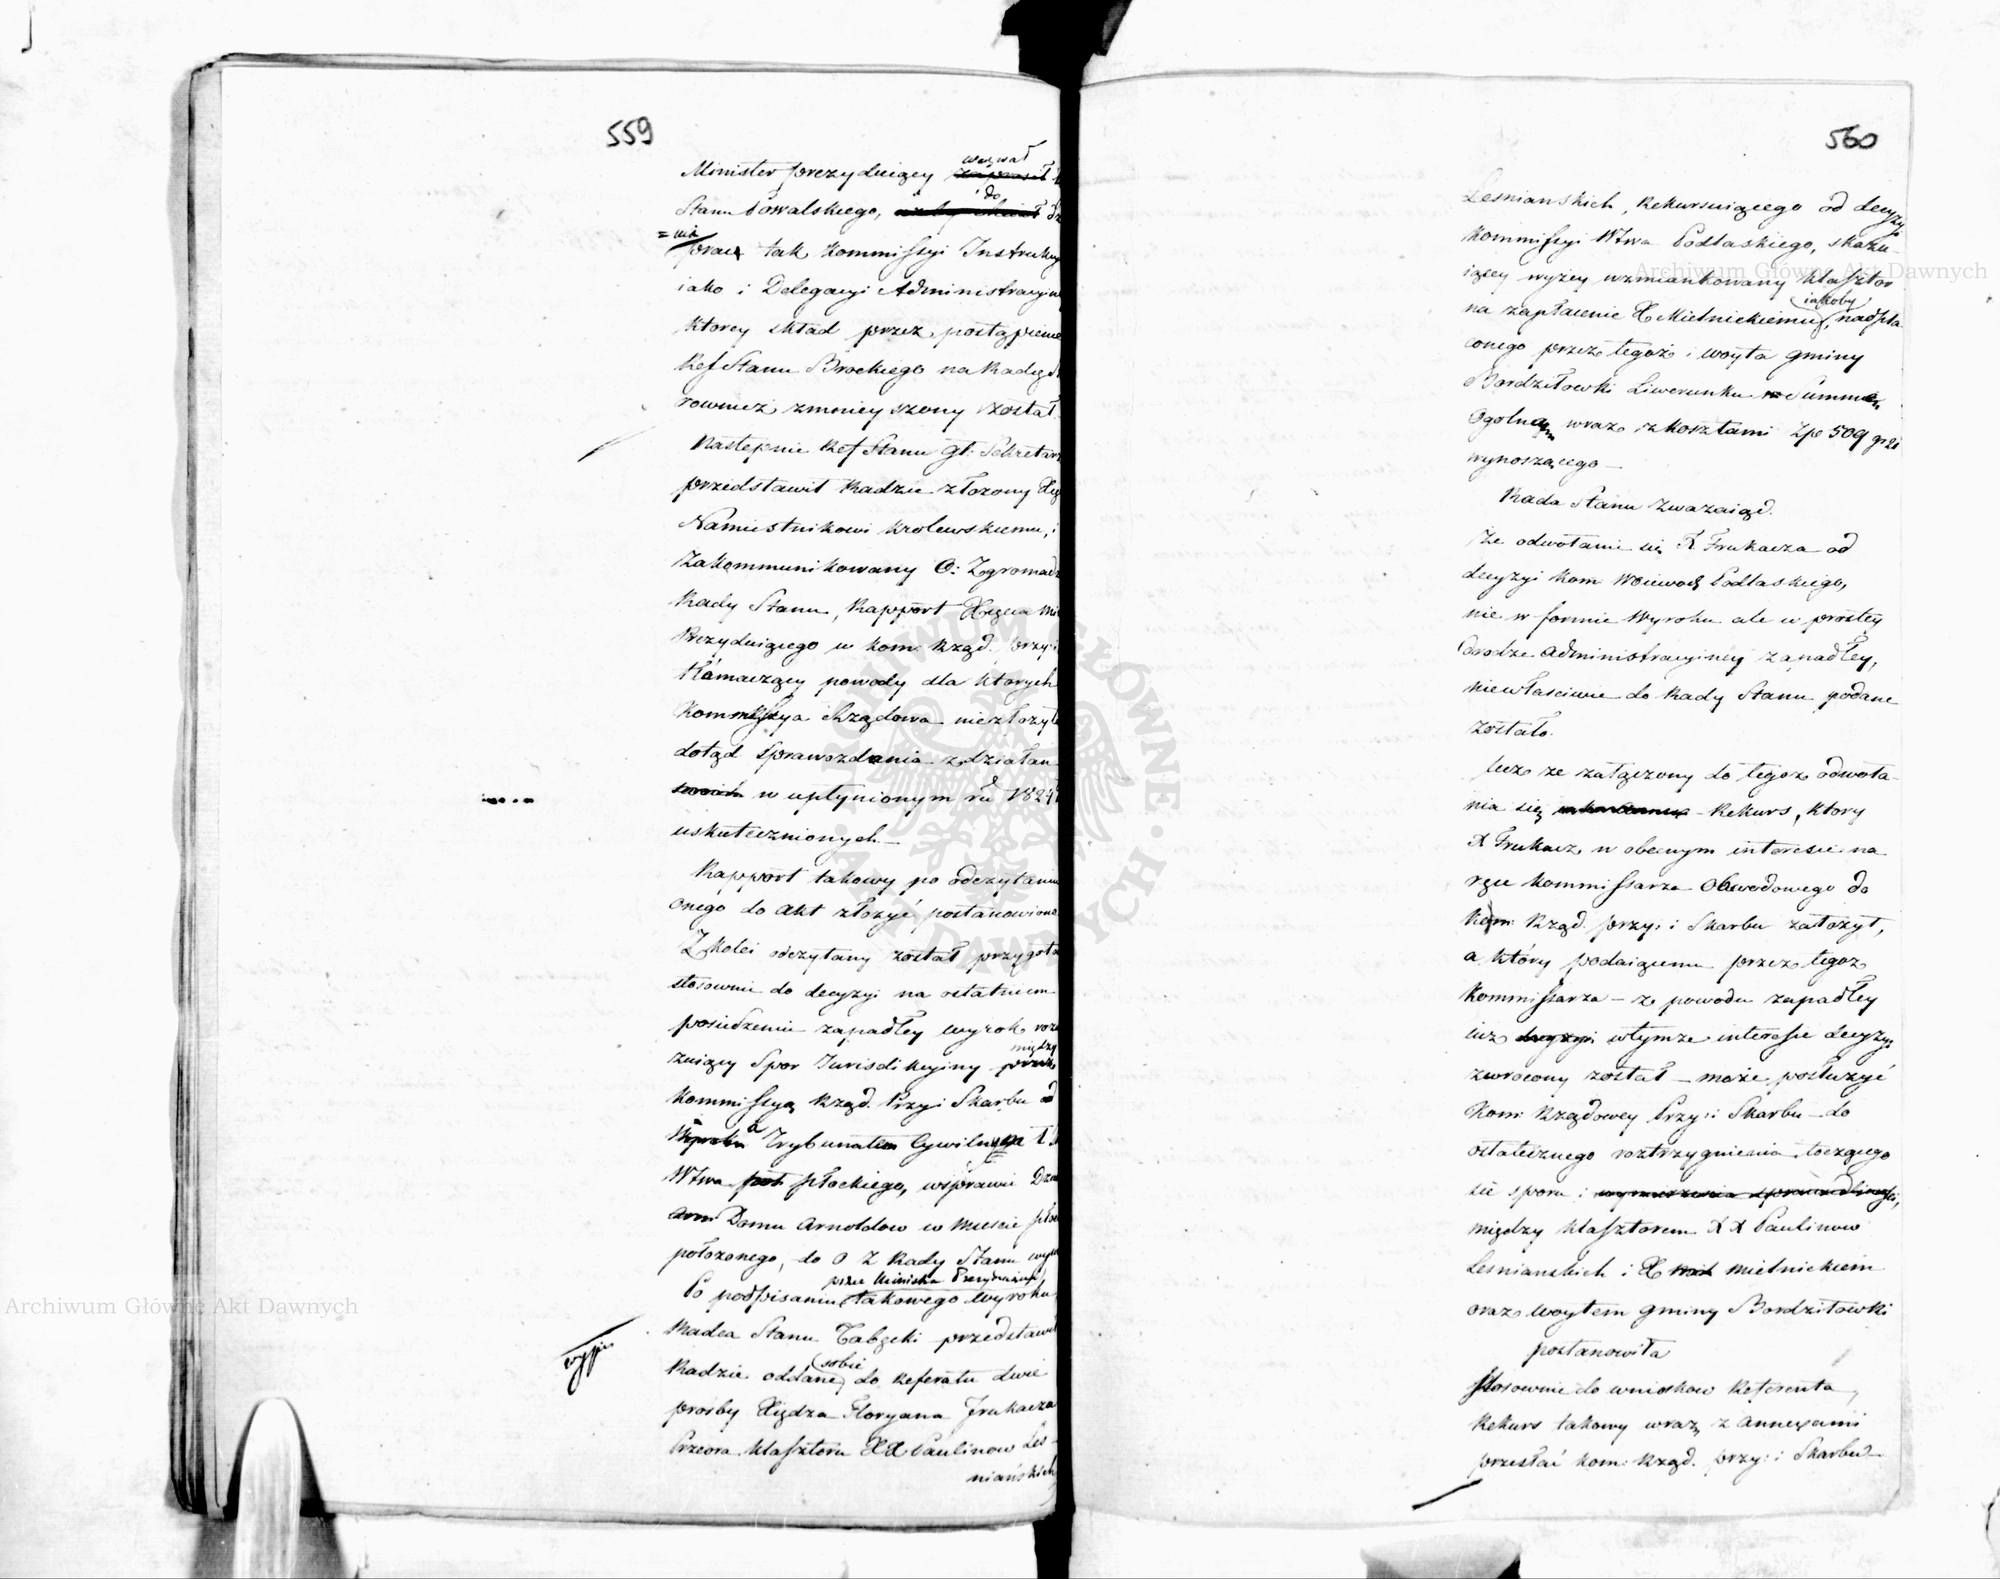 559
Minister prezyduiący wezwał
Stanu Kowalskiego, do
=nia prac tak Kommissyi Instrukcy
iako i Delegacyi Administracyin
ktorey skład przez postąpienie
Ref Stanu Brockiego na Radcę St
rownież zmnieyszony został
Następnie Ref Stanu Gł: Sekretarz
przedstawił Radzie złożony Xię
Namiestnikowi Krolewskiemu, i
zakommunikowany O: Zgromadz
Rady Stanu, Rapport Xięcia Mi
Prezyduiącego w Kom: Rząd. Przy: i
tłómaczący powody dla ktorych
Kommissya Rządowa niezłożyła
dotąd sprawozdania z działań
swoich w upłynionym r̃u 1824
uskutecznionych. —
Rapport takowy po odczytaniu
onego do akt złożyć postanowiono
Z kolei odczytany został przygoto
stosownie do decyzyi na ostatniem
posiedzeniu zapadłey wyrok roz
znaiący Spor Jurisdikcyiny między
Kommissyą Rząd. Przy i Skarbu
a Trybunałem Cywilnym I
Wtwa Płockiego, wsprawie
Domu Arnoldow w Miescie Pło
położonego, do O Z Rady Stanu
przez Ministra Prezyduiącego
Po podpisaniu takowego wyroku
Radca Stanu Tabęcki przedstawił
sobie
Radzie oddane do Referatu dwie
proźby Xiędza Floryana Frukacza
Przeora Klasztoru XX Paulinow Les-
niańskich
560
Lesnianskich, Rekursuiącego od decyzyi
Kommissyi Wtwa Podlaskiego, skazu-
iącey wyżey wzmiankowany Klasztor
iakoby
na zapłacenie X Mielnickiemu, nadpła
conego przez tegoż i woyta gminy
Bordziłowki Liwerunku Summę
Ogolną wraz z kosztami Zło 509 gr 21
wynoszącego —
Rada Stanu zważaiąc.
Że odwołanie się X Frukacza od
decyzyi Kom: Woiewodz Podlaskiego,
nie w formie Wyroku ale w prostey
drodze administracyiney zapadłey,
niewłasciwie do Rady Stanu podane
zostało.
Lecz ze załączony do tegoz odwoła-
nia się Rekurs, ktory
X Frukacz w obecnym interesie na
ręce Kommissarza Obwodowego do
Kom: Rząd. przy: i Skarbu założył,
a który podaiącemu przez tegoz
Kommissarza — z powodu zapadłey
iuz wtymze interessie decyzyi
zwrocony został — może posłużyć
Kom: Rządowey Przy: i Skarbu — do
ostatecznego roztrzygnienia toczącego
się sporu i wymierzenia sprawiedliwości,
między Klasztorem XX Paulinow
Lesnianskich i X Mielnickiem
oraz woytem gminy Bordziłowki
postanowiła
Stosownie do wniosków Referenta,
Rekurs takowy wraz z annexami
przesłać Kom: Rząd. przy: i Skarbu —
Archiwum Główne Akt Dawnych
Archiwum Główne Akt Dawnych
ARCHIWUM GŁÓWNE AKT DAWNYCH